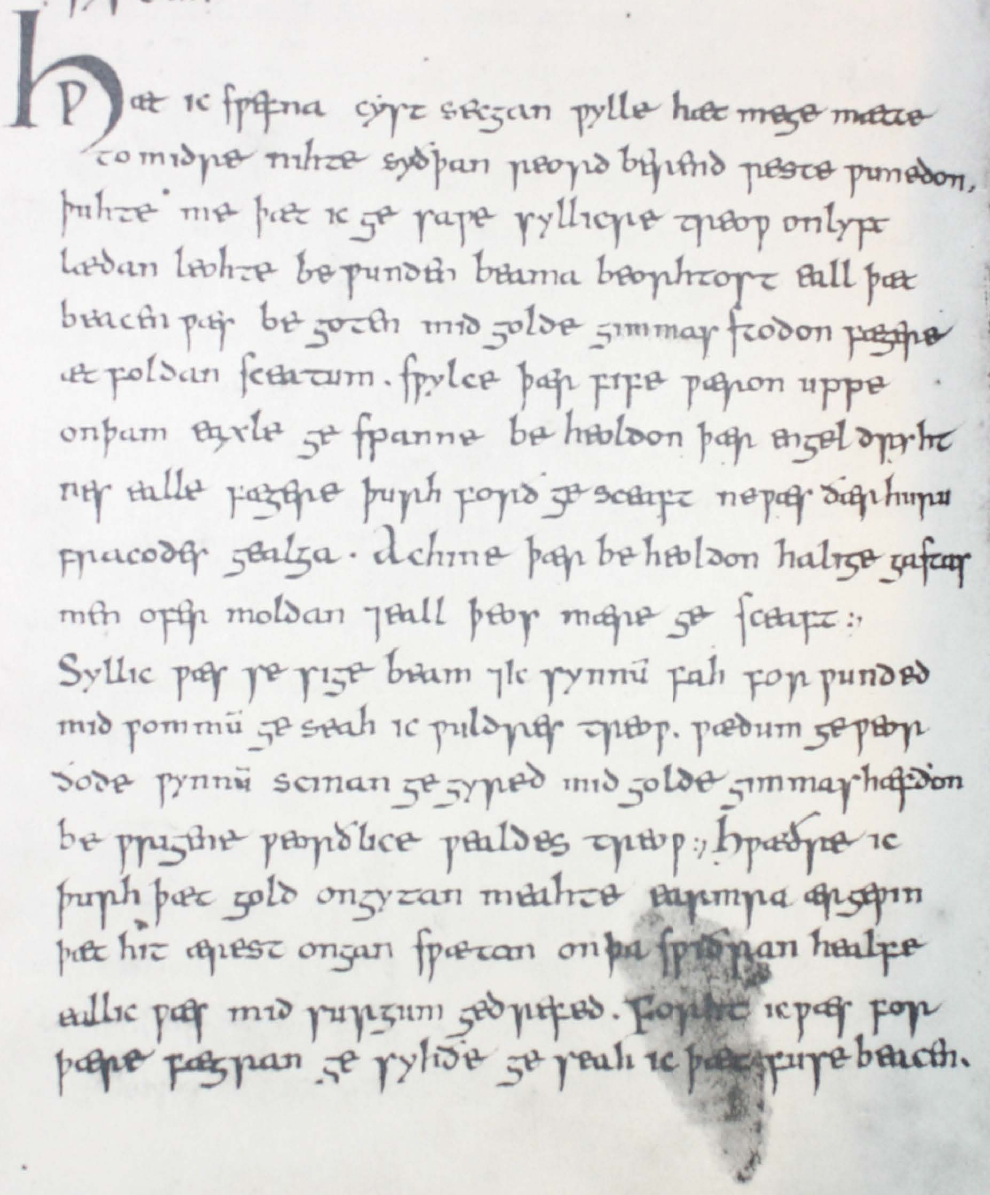 Hƿæt ic sƿefna cyst secgan ƿylle hæt mege mætte
to midre nihte sydþan reord berend reste ƿunedon.
þuhte me þæt ic ge saƿe syllicre treoƿ onlyft
lædan leohte be ƿunden beama beorhtost eall þæt
beacen ƿæs be goten mid golde gimmas stodon fægere
æt foldan sceatum. sƿylce þær fife ƿæron uppe
onþam eaxle ge spanne be heoldon þær engel dryht
nes ealle fægere þurh forð ge sceaft ne ƿæs ðær huru
fracodes gealga. Ac hine þær be heoldon halige gastas
men ofer moldan ⁊eall þeos mære ge sceaft:,
Syllic ƿæs se sige beam ⁊ic synnū fah for ƿunded
mid ƿommū ge seah ic ƿuldres treoƿ. ƿædum ge ƿeor
ðode ƿynnū scinan ge gyred mid golde gimmas hæfdon
be ƿrigene ƿeorðlice ƿealdes treoƿ:, Hƿæðre ic
þurh þæt gold ongytan meahte earmra ærgeƿin
þæt hit ærest ongan sƿætan onþa sƿiðran healfe
eallic ƿæs mid surgum gedrefed. Forht ic ƿæs for
þære fægran ge syhðe ge seah ic þæt fuse beacen.